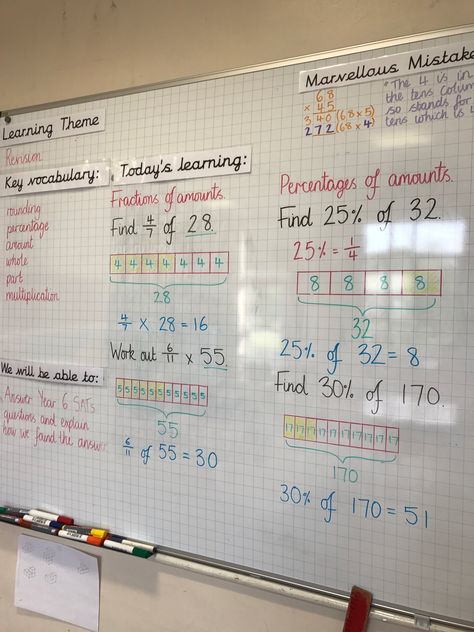 Learning Theme
Revision
Key vocabulary:
rounding
percentage
amount
whole
part
multiplication
We will be able to:
Answer Year 6 SATs
questions and explain
how we found the answer
Today's learning:
Fractions of amounts.
Find 4/7 of 28.
4 4 4 4 4 4 4
28
4/7 x 28 = 16
Work out 6/11 x 55.
5 5 5 5 5 5 5 5 5 5 5
55
6/11 of 55 = 30
Marvellous Mistake
68
x 45
340 (68 x 5)
272 (68 x 4)
"The 4 is in
the tens colum
so stands for
tens which is 4
Percentages of amounts.
Find 25% of 32.
25% = 1/4
8 8 8 8
32
25% of 32 = 8
Find 30% of 170.
17 17 17 17 17 17 17 17 17 17
170
30% of 170 = 51